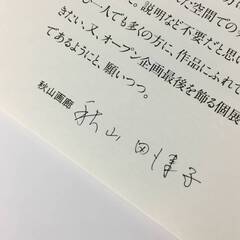 た空間での
。説明など不要だと思い
一人でも多くの方に、作品にふれて
きたい。又、オープン企画最後を飾る個展
てあるようにと、願いつつ。
秋山画廊
秋山田津子